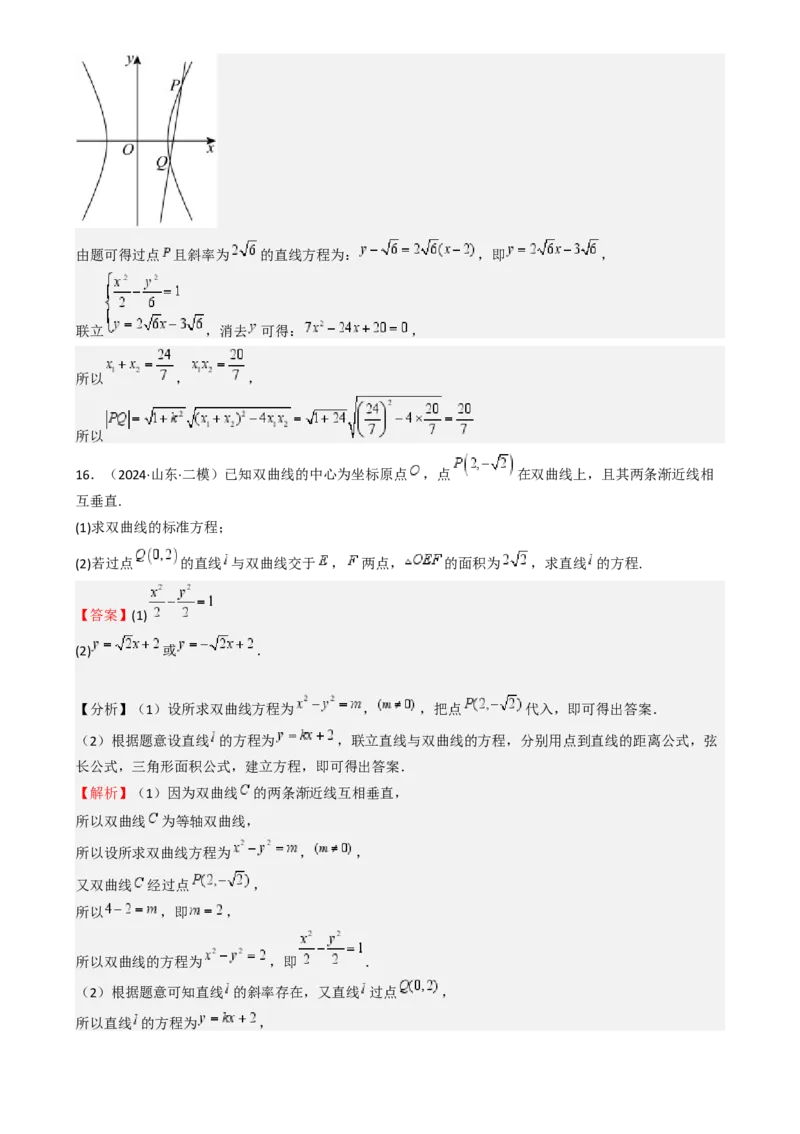 y
P
O
x
Q
由题可得过点 P 且斜率为 2√6 的直线方程为：y−√6=2√6(x−2)，即y=2√6x−3√6，
联立{x²/2−y²/6=1, y=2√6x−3√6，消去 y 可得：7x²−24x+20=0，
所以 x₁+x₂=24/7，x₁x₂=20/7，
所以 |PQ|=√(1+k²)√((x₁+x₂)²−4x₁x₂)=√(1+24)√((24/7)²−4×20/7)=20/7
16．（2024·山东·二模）已知双曲线的中心为坐标原点 O，点 P(2,−√2) 在双曲线上，且其两条渐近线相
互垂直.
(1)求双曲线的标准方程；
(2)若过点 Q(0,2) 的直线 l 与双曲线交于 E，F 两点，△OEF 的面积为 2√2，求直线 l 的方程.
【答案】(1) x²/2−y²/2=1
(2) y=√2x+2 或 y=−√2x+2．
【分析】（1）设所求双曲线方程为 x²−y²=m，(m≠0)，把点 P(2,−√2) 代入，即可得出答案．
（2）根据题意设直线 l 的方程为 y=kx+2，联立直线与双曲线的方程，分别用点到直线的距离公式，弦
长公式，三角形面积公式，建立方程，即可得出答案．
【解析】（1）因为双曲线 C 的两条渐近线互相垂直，
所以双曲线 C 为等轴双曲线，
所以设所求双曲线方程为 x²−y²=m，(m≠0)，
又双曲线 C 经过点 P(2,−√2)，
所以 4−2=m，即 m=2，
所以双曲线的方程为 x²−y²=2，即 x²/2−y²/2=1．
（2）根据题意可知直线 l 的斜率存在，又直线 l 过点 Q(0,2)，
所以直线 l 的方程为 y=kx+2，